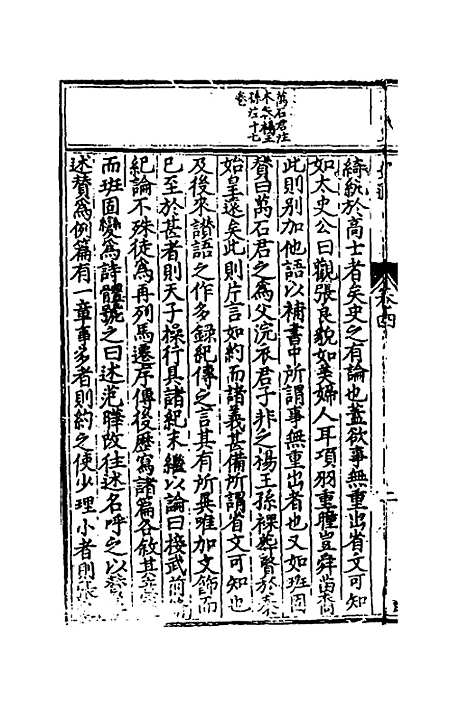 萬石君注
孫注十七
卷四
綺紈於高士者矣史之有論也蓋欲事無重出省文可知
如太史公曰觀張良貌如美婦人耳項羽重瞳豈舜苗裔
此則別加他語以補書中所謂事無重出者也又如班固
贊曰萬石君之為父浣衣君子非之楊王孫裸葬賢於秦
始皇遠矣此則片言如約而諸義甚備所謂省文可知也
及後來讃語之作多錄紀傳之言其有所異唯加文飾而
已至於甚者則天子操行具諸紀末繼以論曰接武前
紀論不殊徒為再列馬遷序傳後歷寫諸篇各敘其
而班固變為詩體號之曰述范曄改彼述名呼之以
述賛為例篇有一章事多者則約之使少理小者則張